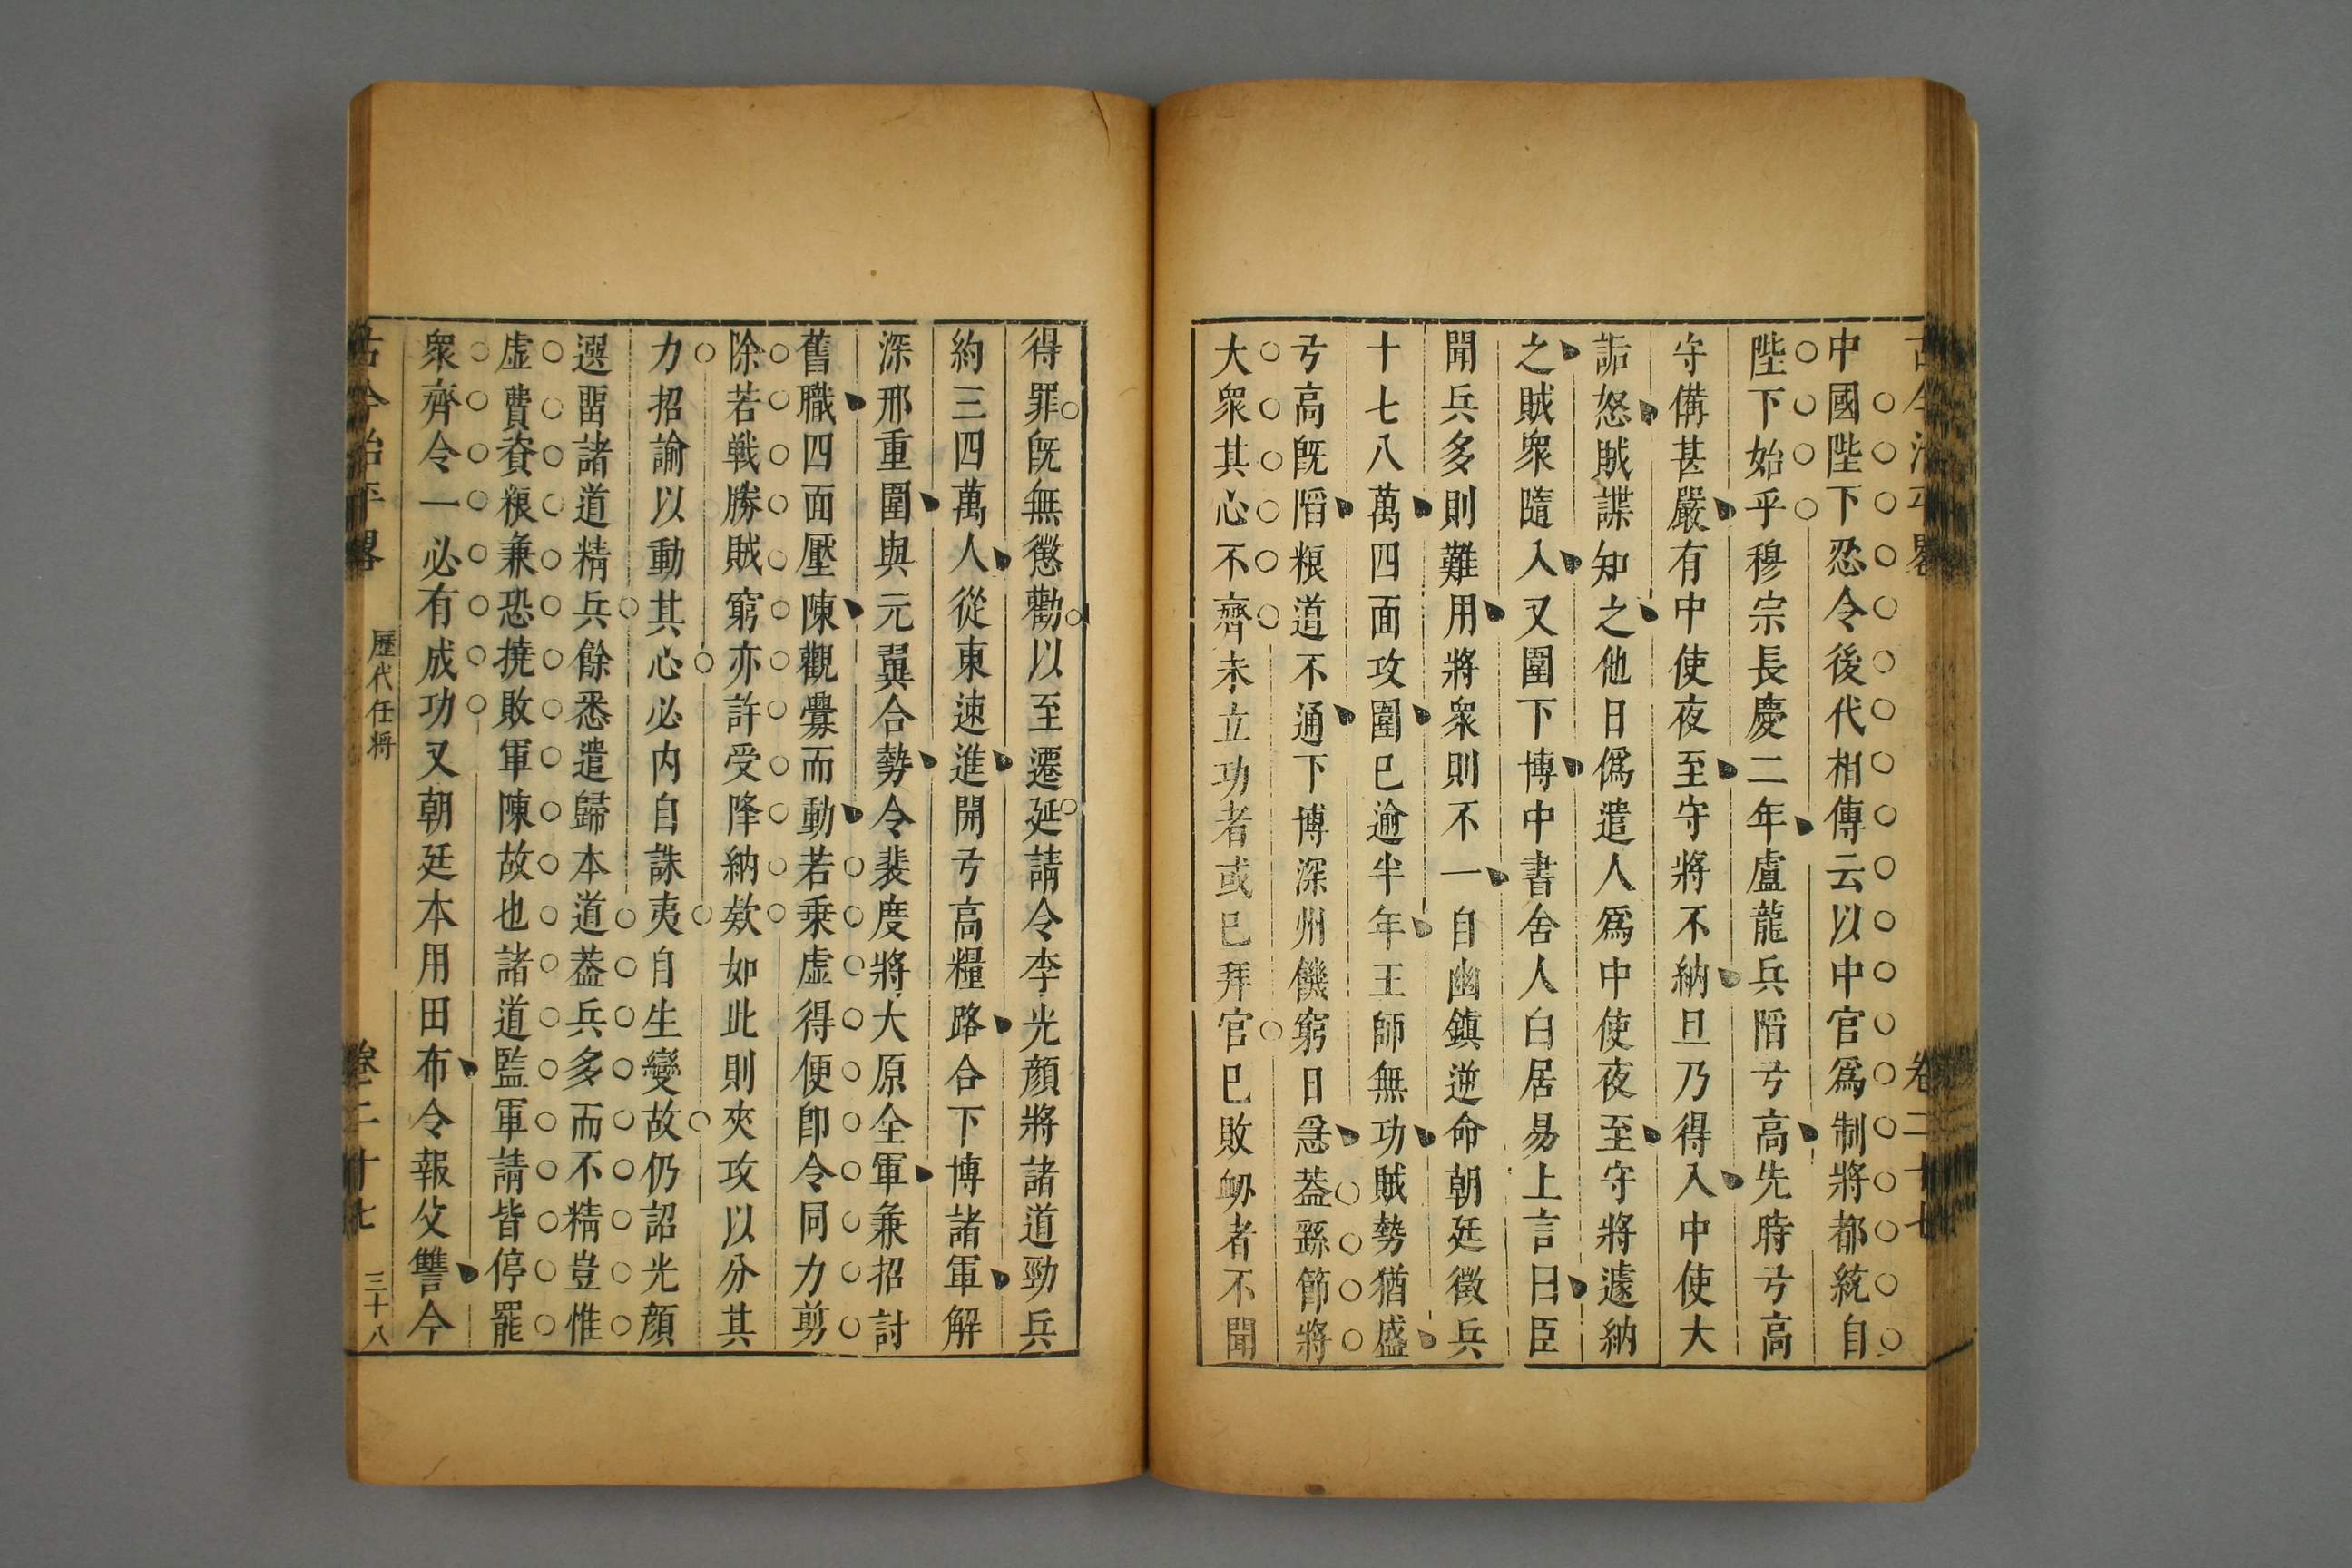 古今治平畧 卷二十七
中國陛下忍令後代相傳云以中官爲制將都統自
陛下始乎穆宗長慶二年盧龍兵䧟弓高先時弓高
守備甚嚴有中使夜至守將不納旦乃得入中使大
詬怒賊諜知之他日僞遣人爲中使夜至守將遽納
之賊衆隨入又圍下博中書舍人白居易上言曰臣
聞兵多則難用將衆則不一自幽鎮逆命朝廷徵兵
十七八萬四面攻圍已逾半年王師無功賊勢猶盛
弓高既䧟粮道不通下博深州饑窮日急葢繇節將
大衆其心不齊未立功者或已拜官已敗衂者不聞
得罪旣無懲勸以至遷延請令李光顔將諸道勁兵
約三四萬人從東速進開弓高糧路合下博諸軍解
深邢重圍與元翼合勢令裴度將大原全軍兼招討
舊職四面壓陳觀釁而動若乗虛得便卽令同力剪
除若戰勝賊窮亦許受降納欵如此則夾攻以分其
力招諭以動其心必内自誅夷自生變故仍詔光顔
選畱諸道精兵餘悉遣歸本道葢兵多而不精豈惟
虛費資粮兼恐撓敗軍陳故也諸道監軍請皆停罷
衆齊令一必有成功又朝廷本用田布令報父讐今
古今治平畧 歷代任將 卷二十七 三十八